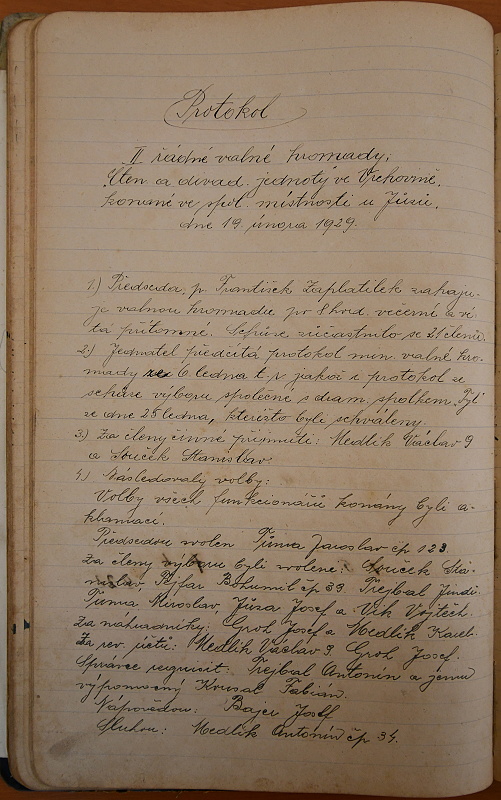 Protokol
II řádné valné hromady,
Čten. a divad. jednoty ve Vrchovině,
konané ve spol. místnosti u Jůzů,
dne 19. února 1929.
1.) Předseda, p. František Zaplatílek zahaju-
je valnou hromadu po 8 hod. večerní a ví-
tá přítomné. Schůze zúčastnilo se 21 členů.
2.) Jednatel předčítá protokol min. valné hro-
mady ze 6 ledna t. r. jakož i protokol ze
schůze výboru společné s dram. spolkem Tyl
ze dne 28 ledna, kteréžto byli schváleny.
3.) Za členy činné přijmuti: Medlík Václav 9
a Souček Stanislav.
4.) Následovaly volby:
Volby všech funkcionářů konány byli a-
klamací.
Předsedou zvolen Tůma Jaroslav čp 123.
Za členy výboru byli zvoleni: Souček Sta-
nislav, Pejfar Bohumil čp 39. Trejbal Jindř.
Tůma Miroslav, Jůza Josef a Vik Vojtěch.
Za náhradníky: Groh Josef a Medlík Karel.
Za rev. účtů: Medlík Václav 9. Groh Josef.
Správce requisit. Trejbal Antonín a jemu
výpomocný Fabián.
Nápovědou: Bajer Josef
Sluhou: Medlík Antonín čp 34.